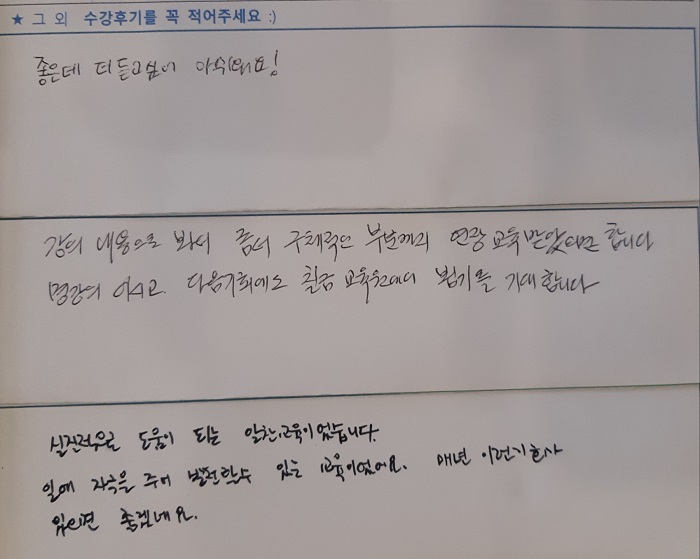 ★ 그 외 수강후기를 꼭 적어주세요 :)
좋은데 더 듣고싶어 아쉬워요!
강의 내용으로 봐서 좀더 구체적인 부분까지 연장 교육 받았으면 합니다
명강의 이시고. 다음기회에도 교육원에서 뵙기를 기대합니다
실질적으로 도움이 되는 알찬교육이었습니다.
일에 자극을 주어 발전할수 있는 교육이었어요. 매년 이런기회가
있으면 좋겠네요.